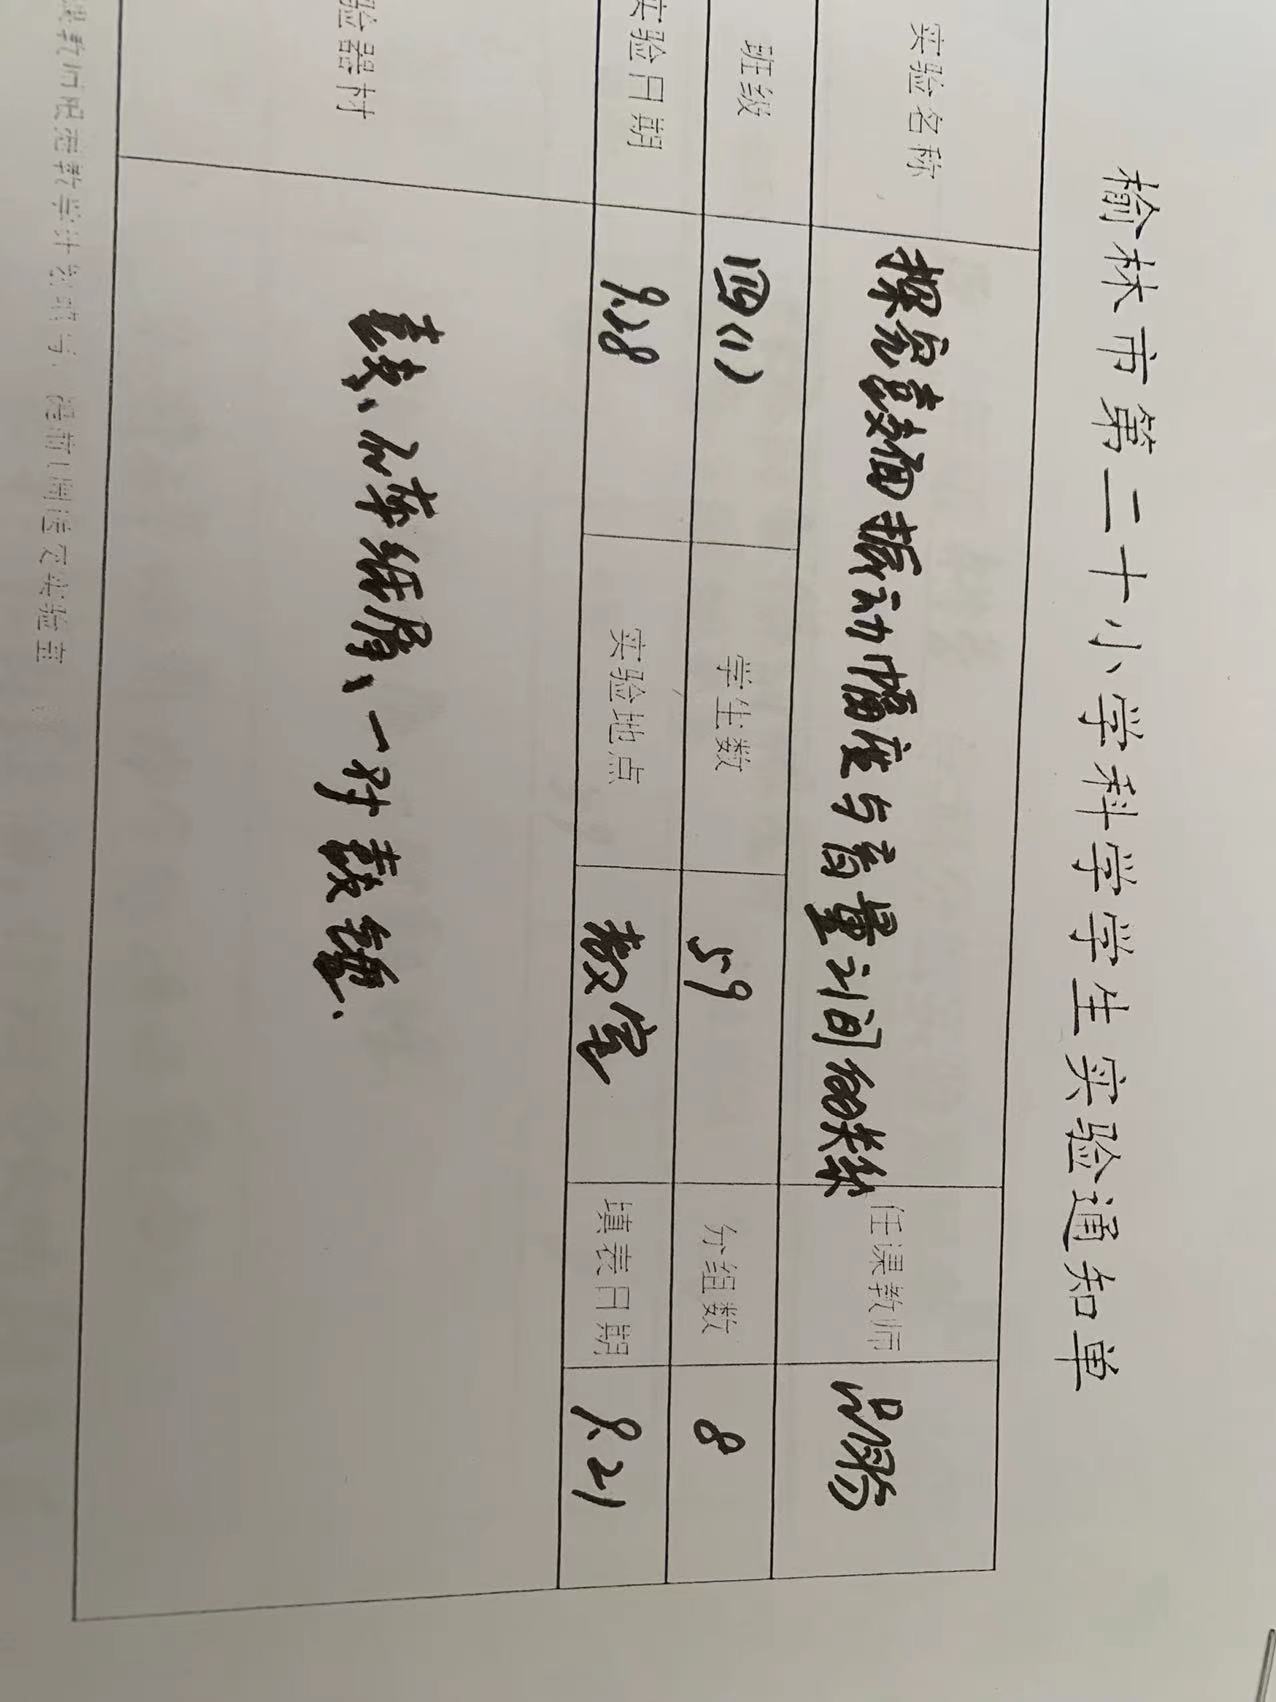 榆林市第二十小学科学学生实验通知单
实验名称 探究鼓面振动幅度与音量之间的关系 任课教师
班级 四(1) 学生数 59 分组数 8
实验日期 9.28 实验地点 教室 填表日期 9.21
验器材 鼓、碎纸屑、一对鼓锤、
课教师根据教学计划填写，提前1周送交实验室